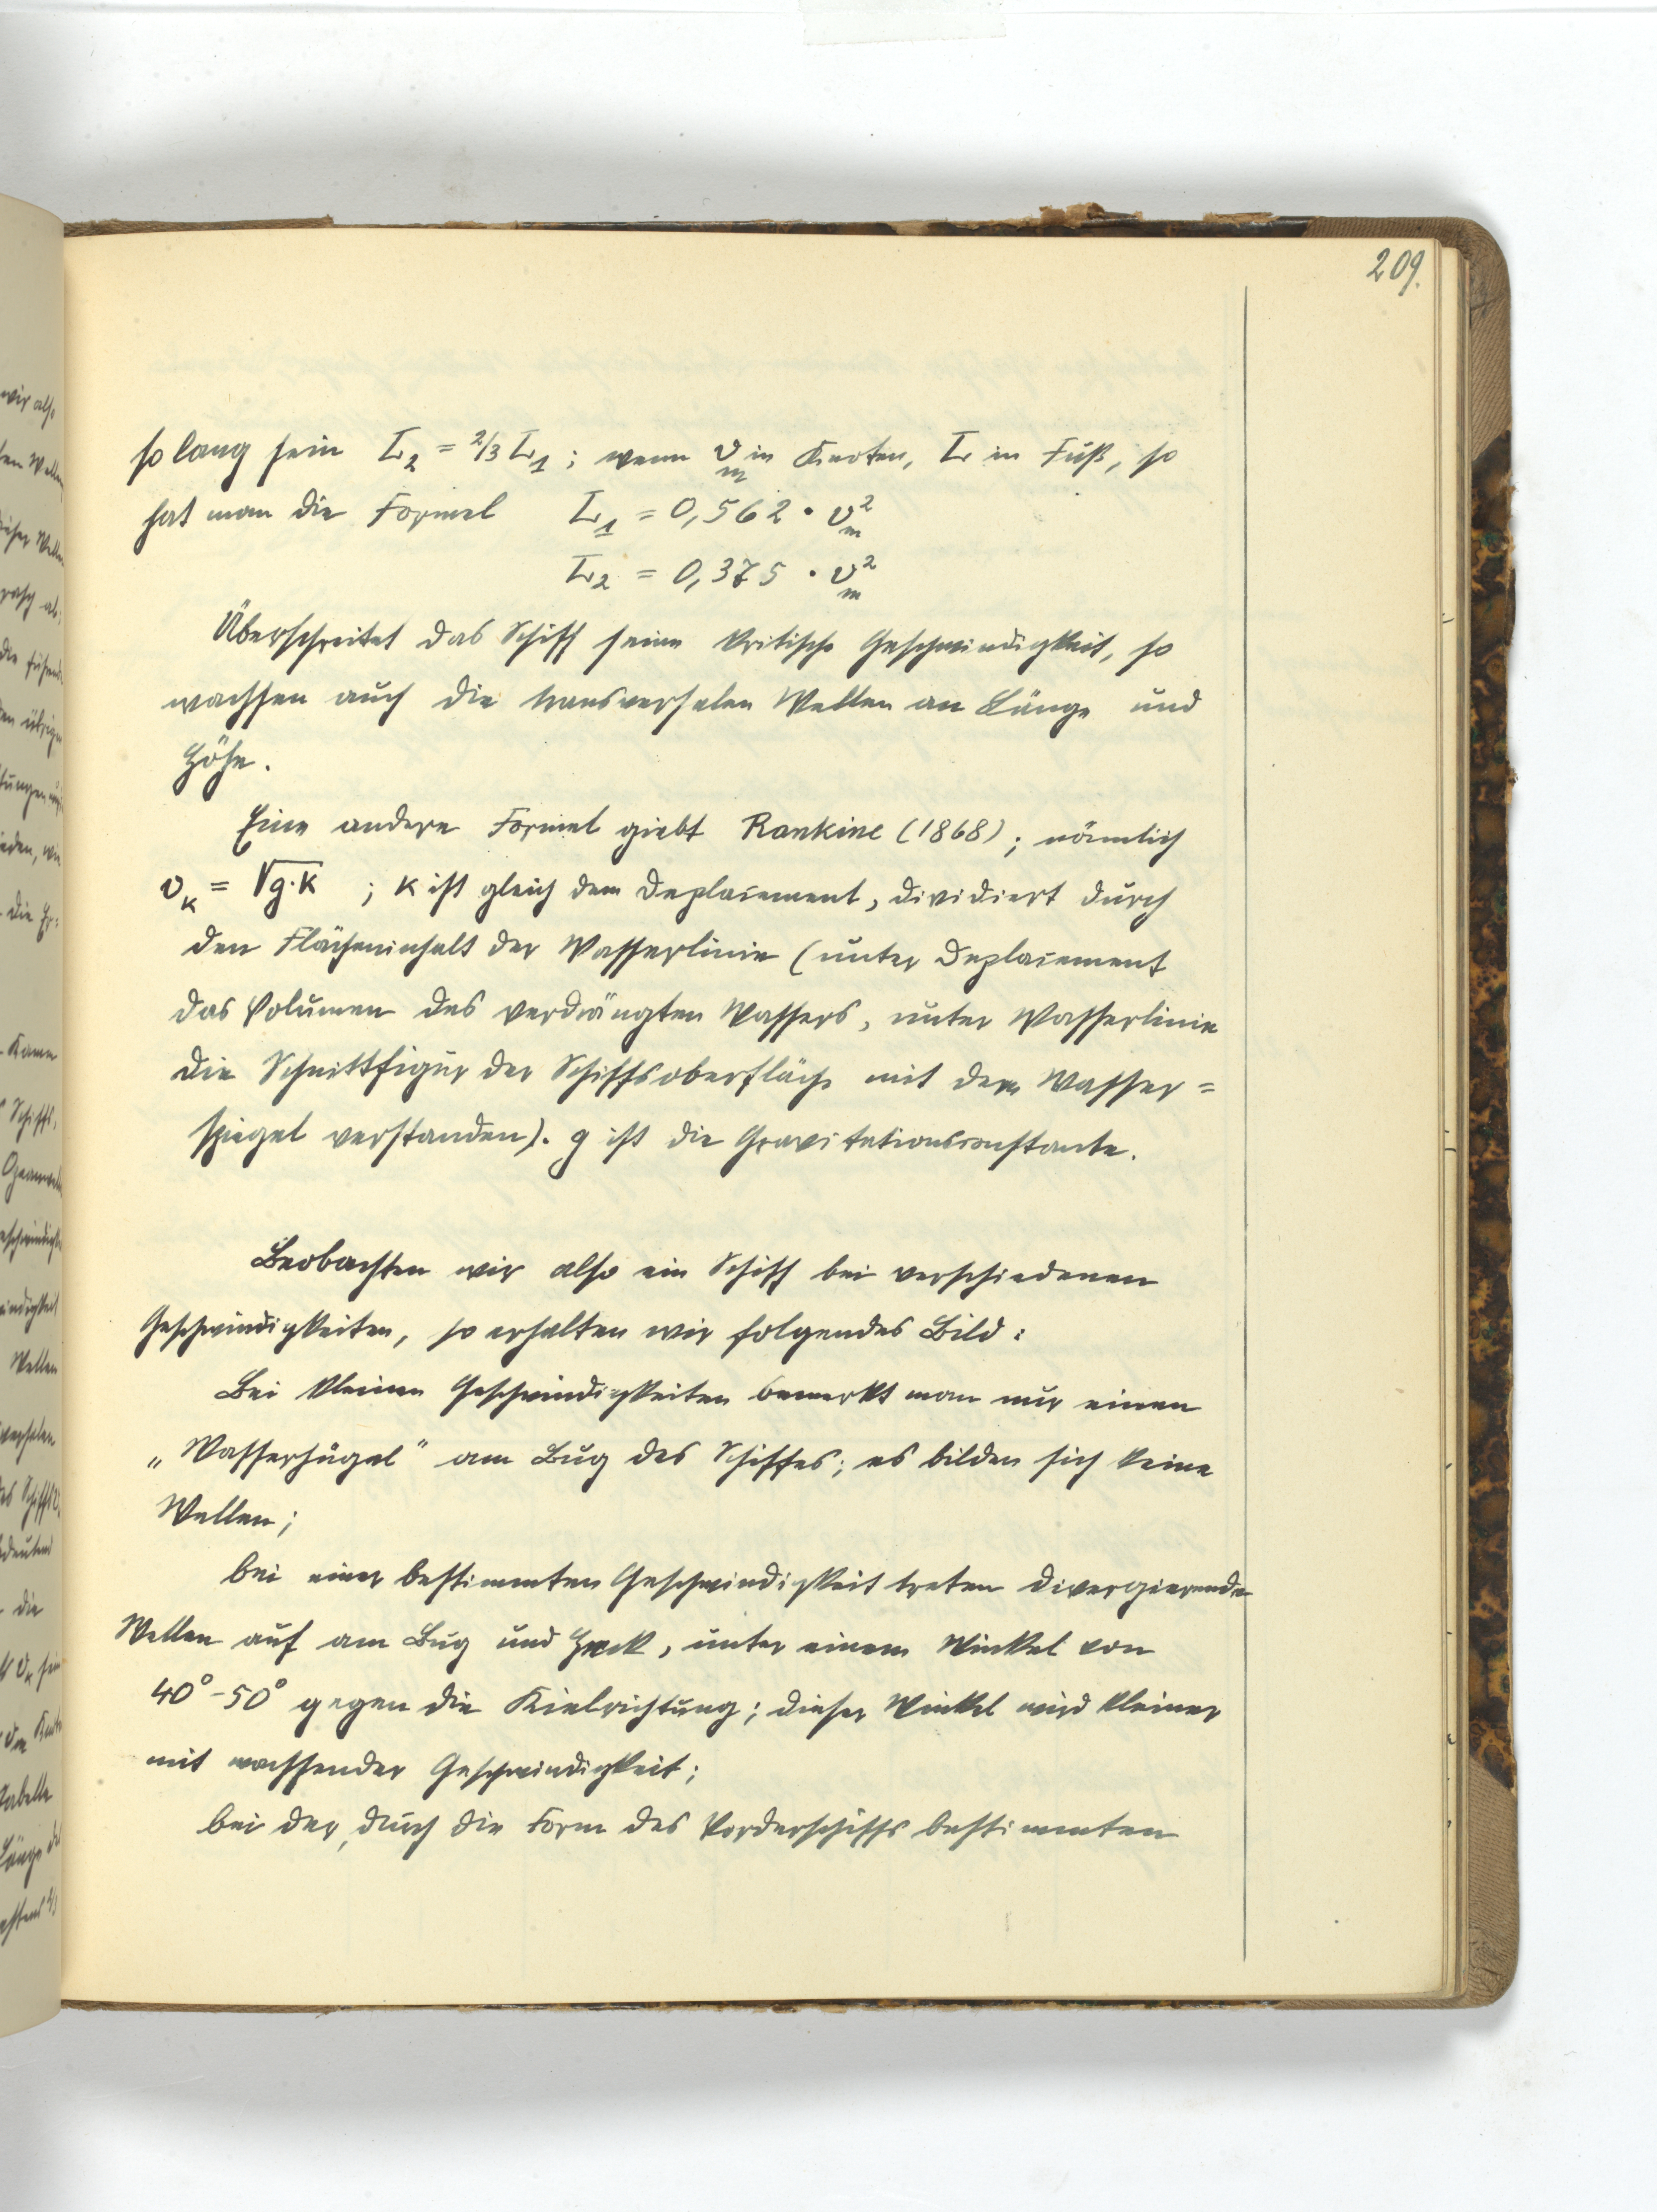 209.
so lang sein L₂ = 2/3 L₁; wenn v_m in Knoten, L in Fuß, so
hat man die Formel L₁ = 0,562 · v_m²
L₂ = 0,375 · v_m²
Überschreitet das Schiff seine kritische Geschwindigkeit, so
wachsen auch die transversalen Wellen an Länge und
Höhe.
Eine andere Formel giebt Rankine (1868); nämlich
v_K = √g·K ; K ist gleich dem Deplacement, dividiert durch
den Flächeninhalt der Wasserlinie (unter Deplacement
das Volumen des verdrängten Wassers, unter Wasserlinie
die Schnittfigur der Schiffsoberfläche mit dem Wasser=
spiegel verstanden). g ist die Gravitationsconstante.
Beobachten wir also ein Schiff bei verschiedenen
Geschwindigkeiten, so erhalten wir folgendes Bild:
Bei kleinen Geschwindigkeiten bemerkt man nur einen
„Wasserhügel" am Bug des Schiffes; es bilden sich keine
Wellen;
bei einer bestimmten Geschwindigkeit treten divergierende
Wellen auf am Bug und Heck, unter einem Winkel von
40°-50° gegen die Kielrichtung; dieser Winkel wird kleiner
mit wachsender Geschwindigkeit;
bei der, durch die Form des Vorderschiffs bestimmten